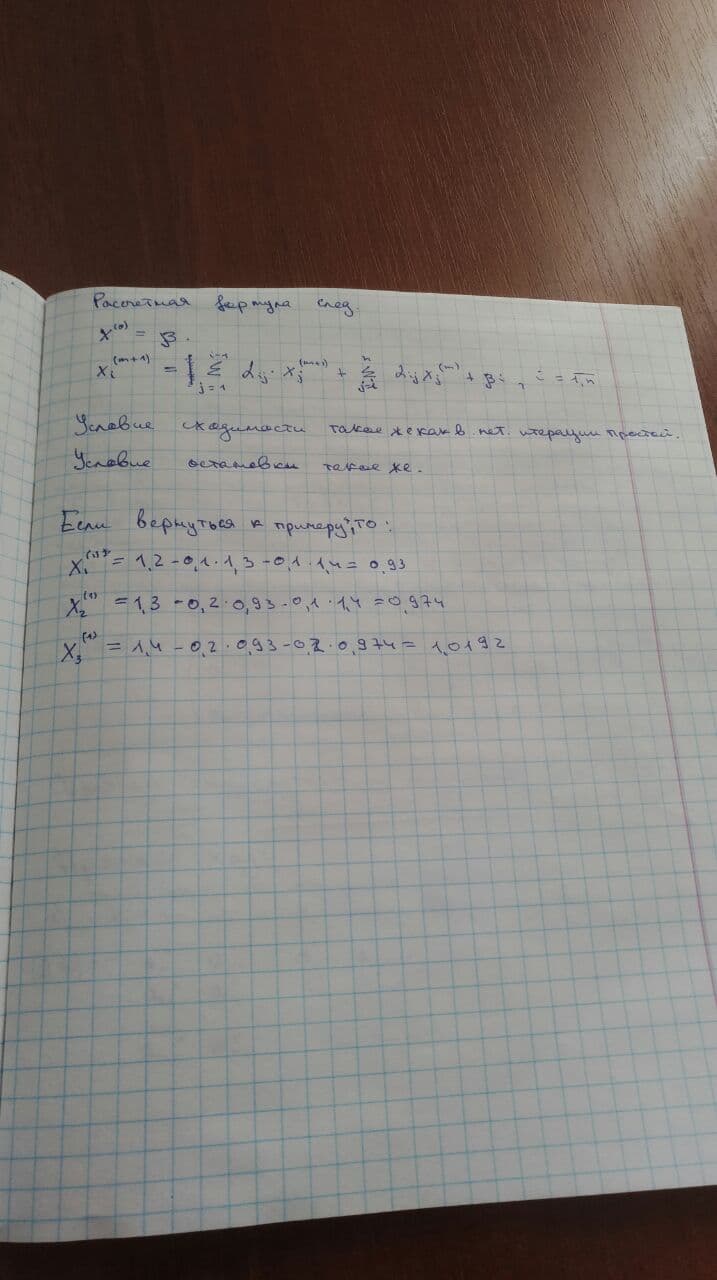 Рассчетная формула след.
x^(0) = β.
x_i^(m+1) = ∑_{j=1}^{i-1} α_ij · x_j^(m+1) + ∑_{j=i}^{n} α_ij x_j^(m) + β_i , i = 1,n
Условие сходимости такое же как в мет. итерации простой.
Условие остановки такое же.
Если вернуться к примеру, то :
x_1^(1) = 1,2 - 0,1 · 1,3 - 0,1 · 1,4 = 0,93
x_2^(1) = 1,3 - 0,2 · 0,93 - 0,1 · 1,4 = 0,974
x_3^(1) = 1,4 - 0,2 · 0,93 - 0,2 · 0,974 = 1,0192